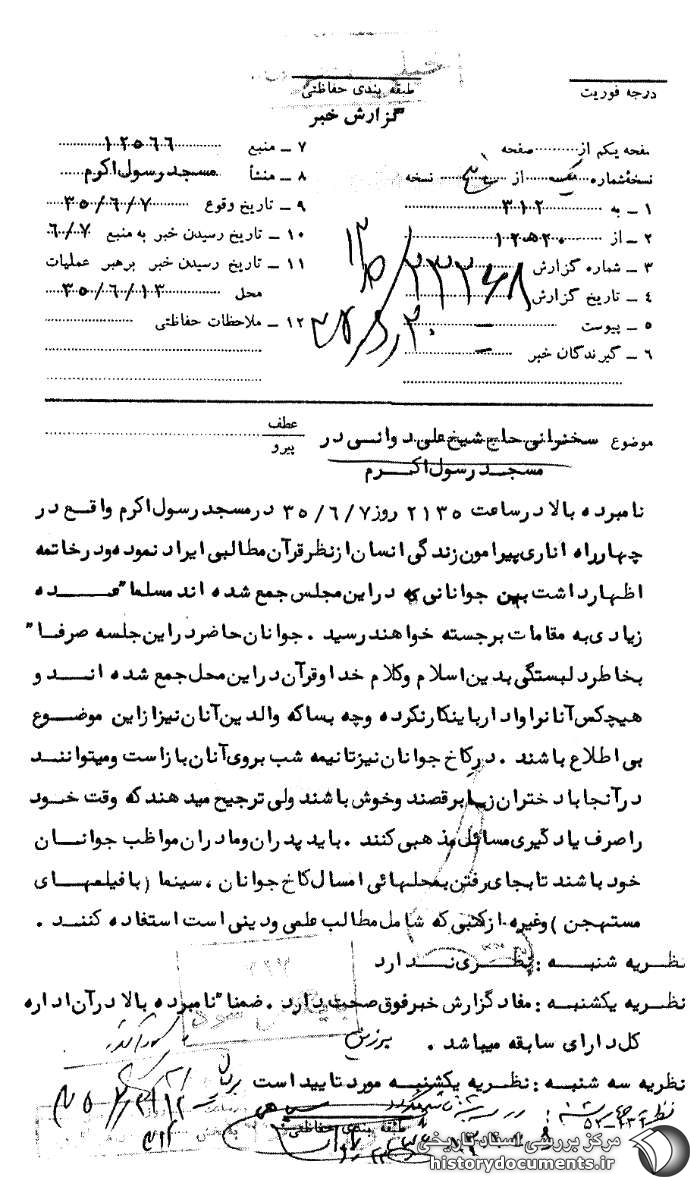 درجه فوریت
طبقه بندی حفاظتی
گزارش خبر
صفحه یکم از صفحه
نسخهٔ شماره یکسه از نسخه
۱ ـ به ۳۱۲
۲ ـ از ۲۰ ه‍ ۱۲
۳ ـ شماره گزارش ۲۳۲۶۸
۴ ـ تاریخ گزارش
۵ ـ پیوست ـ
۶ ـ گیرندگان خبر ـ
۷ ـ منبع ۱۲۵۶۶
۸ ـ منشأ مسجد رسول اکرم
۹ ـ تاریخ وقوع ۳۵/۶/۷
۱۰ ـ تاریخ رسیدن خبر به منبع ۶/۷
۱۱ ـ تاریخ رسیدن خبر برهبر عملیات
محل ۳۵/۶/۱۳
۱۲ ـ ملاحظات حفاظتی
موضوع سخنرانی حاج شیخ علی دوانی در
مسجد رسول اکرم
عطف
پیرو
نامبرده بالا در ساعت ۲۱۳۵ روز ۳۵/۶/۷ در مسجد رسول اکرم واقع در
چهارراه اناری پیرامون زندگی انسان از نظر قرآن مطالبی ایراد نموده و در خاتمه
اظهار داشت بین جوانانی که در این مجلس جمع شده اند مسلما" عده
زیادی به مقامات برجسته خواهند رسید . جوانان حاضر در این جلسه صرفا"
بخاطر دلبستگی بدین اسلام و کلام خدا و قرآن در این محل جمع شده اند و
هیچکس آنانرا وادار باینکار نکرده و چه بسا که والدین آنان نیز از این موضوع
بی اطلاع باشند . در کاخ جوانان نیز تا نیمه شب بروی آنان باز است و میتوانند
در آنجا با دختران زیبا برقصند و خوش باشند ولی ترجیح میدهند که وقت خود
را صرف یادگیری مسائل مذهبی کنند . باید پدران و مادران مواظب جوانان
خود باشند تا بجای رفتن به محلهائی امسال کاخ جوانان ، سینما ( با فیلمهای
مستهجن ) و غیره از کتبی که شامل مطالب علمی و دینی است استفاده کنند .
نظریه شنبه : نظری ندارد
نظریه یکشنبه : مفاد گزارش خبر فوق صحت دارد . ضمنا" نامبرده بالا در آن اداره
کل دارای سابقه میباشد .
نظریه سه شنبه : نظریه یکشنبه مورد تایید است
طبقه بندی حفاظتی
مرکز بررسی اسناد تاریخی
historydocuments.ir